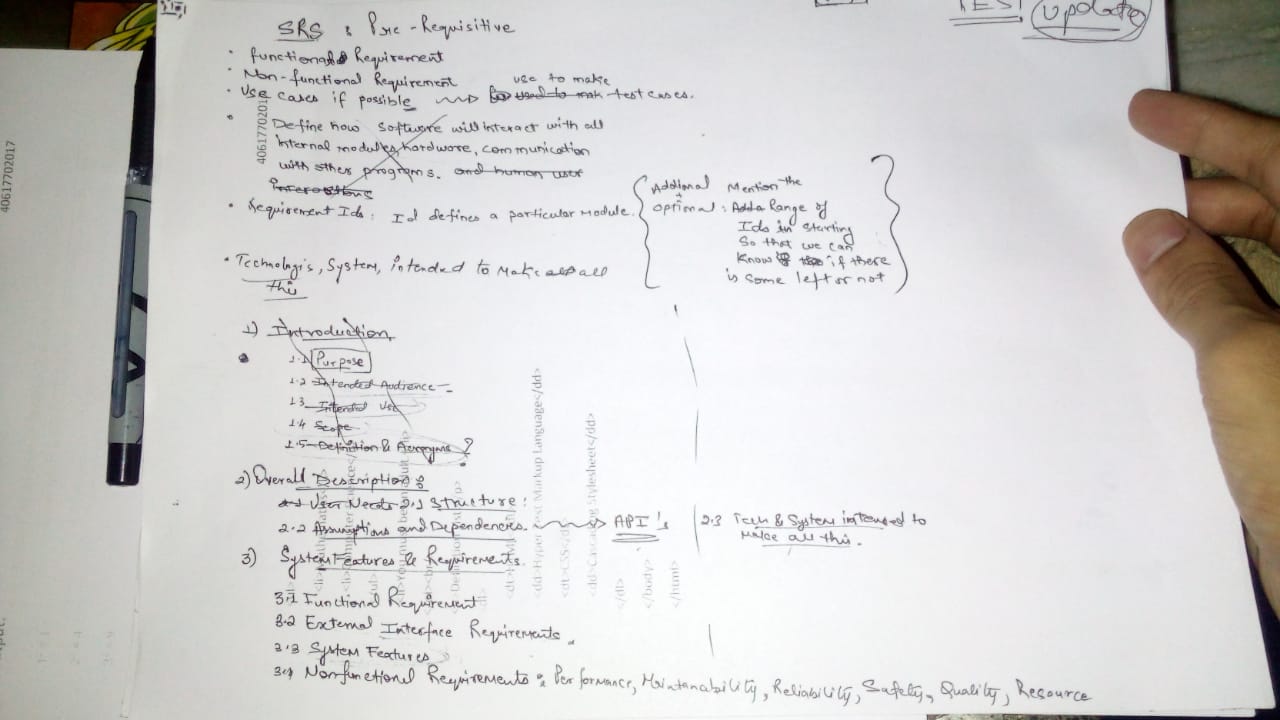 TEST update
SRS : Pre-Requisitive
• functional Requirement
• Non-functional Requirement
use to make
• Use cases if possible used to mak test cases.
• Define how software will interact with all
internal modules, hardware, communication
with other programs. and human user
interactions
• Requirement Ids : Id defines a particular module.
Additional Mention the
+
optional : Add a Range of
Ids in starting
so that we can
know if there
is some left or not
• Technologis, System, intended to Make all
this
1) Introduction
1.1 Purpose
1.2 Intended Audience -
1.3 Intended Use
1.4 Scope
1.5 Definition & Acronyms ?
2) Overall Description :
User Needs 2.1 Structure :
2.2 Assumptions and Dependencies. API's
2.3 Tech & System intensed to
make all this.
3) System Features & Requirements.
3.1 Functional Requirement
3.2 External Interface Requirements.
3.3 System Features
3.4 Nonfunctional Requirements : Performance, Maintanability, Reliability, Safety, Quality, Resource
40617702017
40617702017
<dd>Hyper Text Markup Language</dd>
<dt>CSS</dt>
<dd>Cascading Stylesheet</dd>
</dl>
</body>
</html>